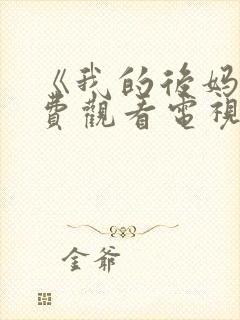 《我的後妈
費觀看電視
金爺